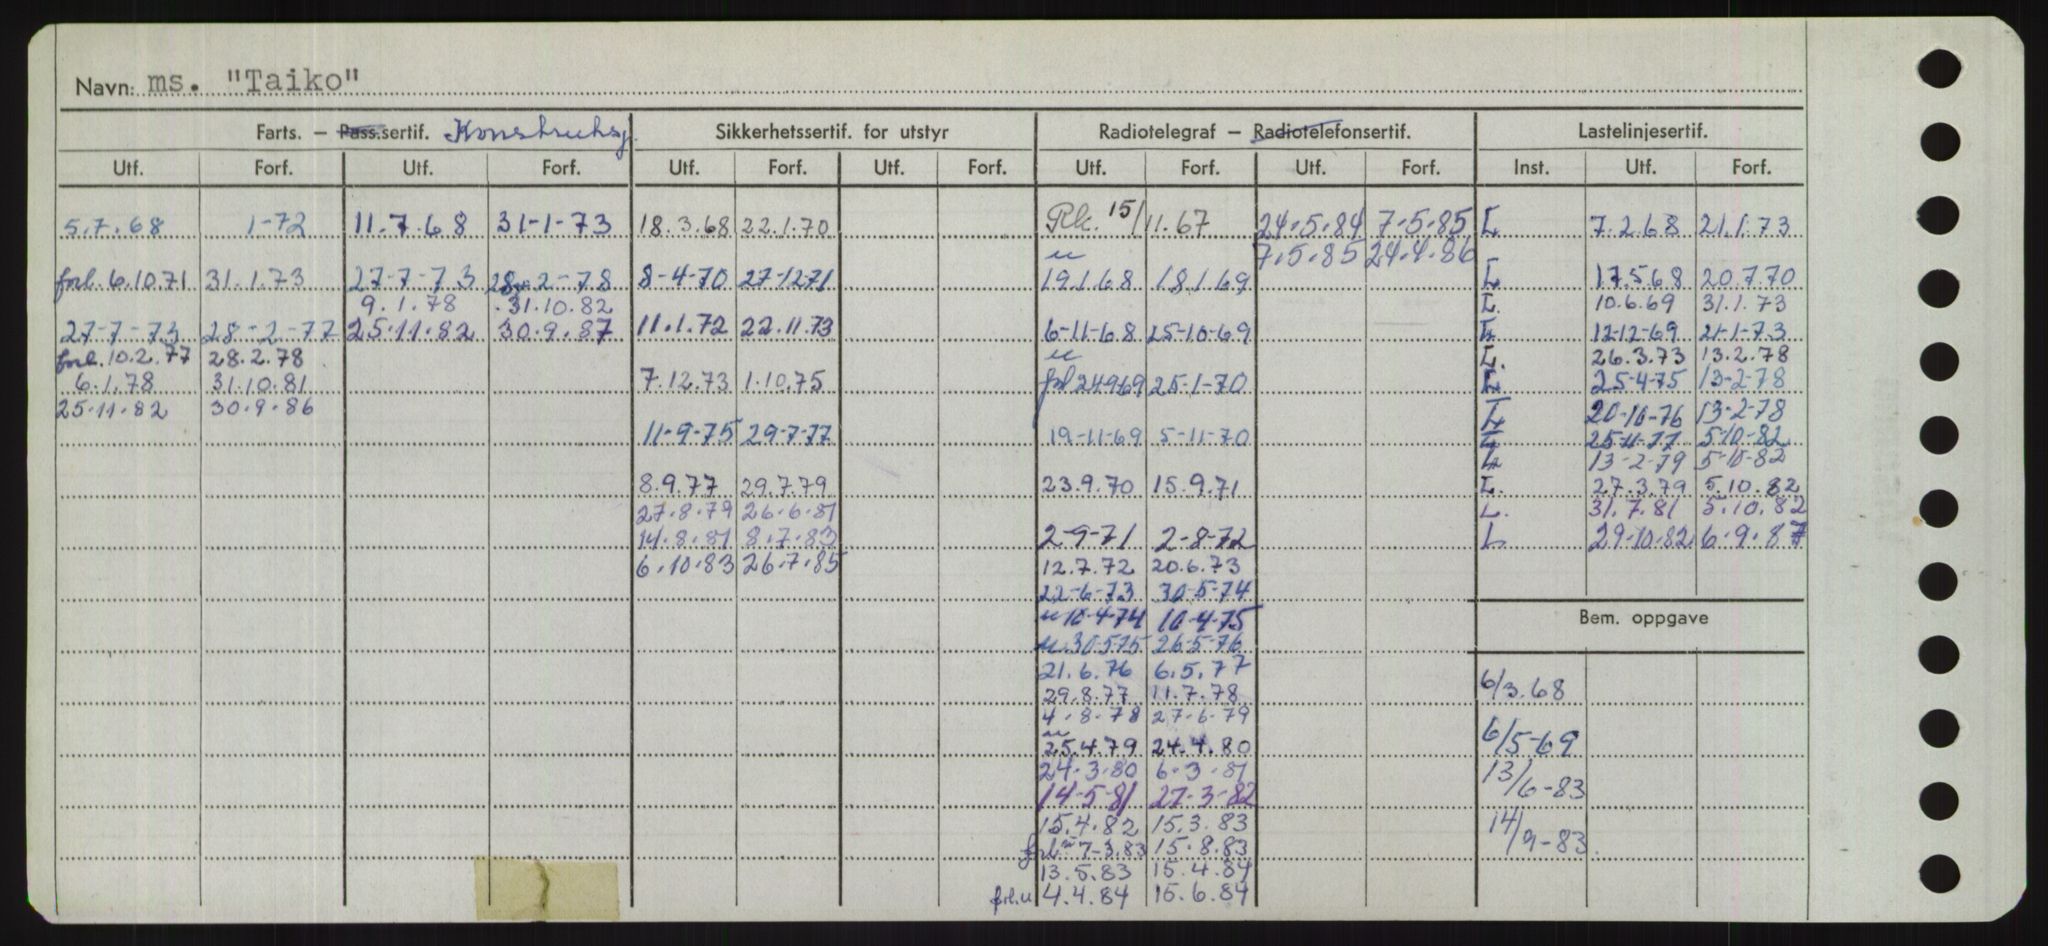 Navn: ms. "Taiko"
Farts. – Pass.sertif. Konstruksj. Sikkerhetssertif. for utstyr Radiotelegraf – Radiotelefonsertif. Lastelinjesertif.
Utf. Forf. Utf. Forf. Utf. Forf. Utf. Forf. Utf. Forf. Utf. Forf. Inst. Utf. Forf.
5.7.68 1-72 11.7.68 31-1-73 18.3.68 22.1.70 Rk. 15/11.67 24.5.84 7-5.85 L 7.2.68 21.1.73
u 7.5.85 24.4.86
forl. 6.10.71 31.1.73 27-7-73 28-2-78 8-4-70 27-12-71 19.1.68 18.1.69 L 17.5.68 20.7.70
9.1.78 31.10.82 L. 10.6.69 31.1.73
27-7-73 28-2-77 25.11.82 30.9.87 11.1.72 22.11.73 6-11-68 25-10-69 L 12-12-69 21-1-73
forl. 10.2.77 28.2.78 u L. 26.3.73 13.2.78
6.1.78 31.10.81 7.12.73 1.10.75 forl 24-9-69 25-1-70 L 25-4-75 13-2-78
25.11.82 30.9.86 L 20-10-76 13-2-78
11-9-75 29-7-77 19-11-69 5-11-70 L 25-11-77 5-10-82
L 13-2-79 5-10-82
8.9.77 29.7.79 23.9.70 15.9.71 L. 27.3.79 5.10.82
27.8.79 26.6.81 L. 31.7.81 5.10.82
14.8.81 8.7.83 2-9-71 2-8-72 L 29-10-82 6-9-87
6.10.83 26.7.85 12.7.72 20.6.73
22-6-73 30-5-74
u 10-4-74 10-4-75 Bem. oppgave
u. 30-5-75 26-5-76
21.6.76 6.5.77
29.8.77 11.7.78 6/3.68
4-8-78 27-6-79
u
25.4.79 24.4.80 6/5-69
24.3.80 6.3.81 13/6-83
14-5-81 27-3-82
15.4.82 15.3.83 14/9-83.
forl. 7-3.83 15.8.83
13.5.83 15.4.84
forl. u 4.4.84 15.6.84